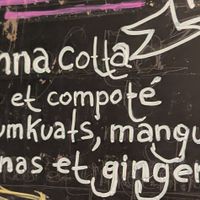 nna cotta
et compoté
umkuats, mangu
nas et ginger